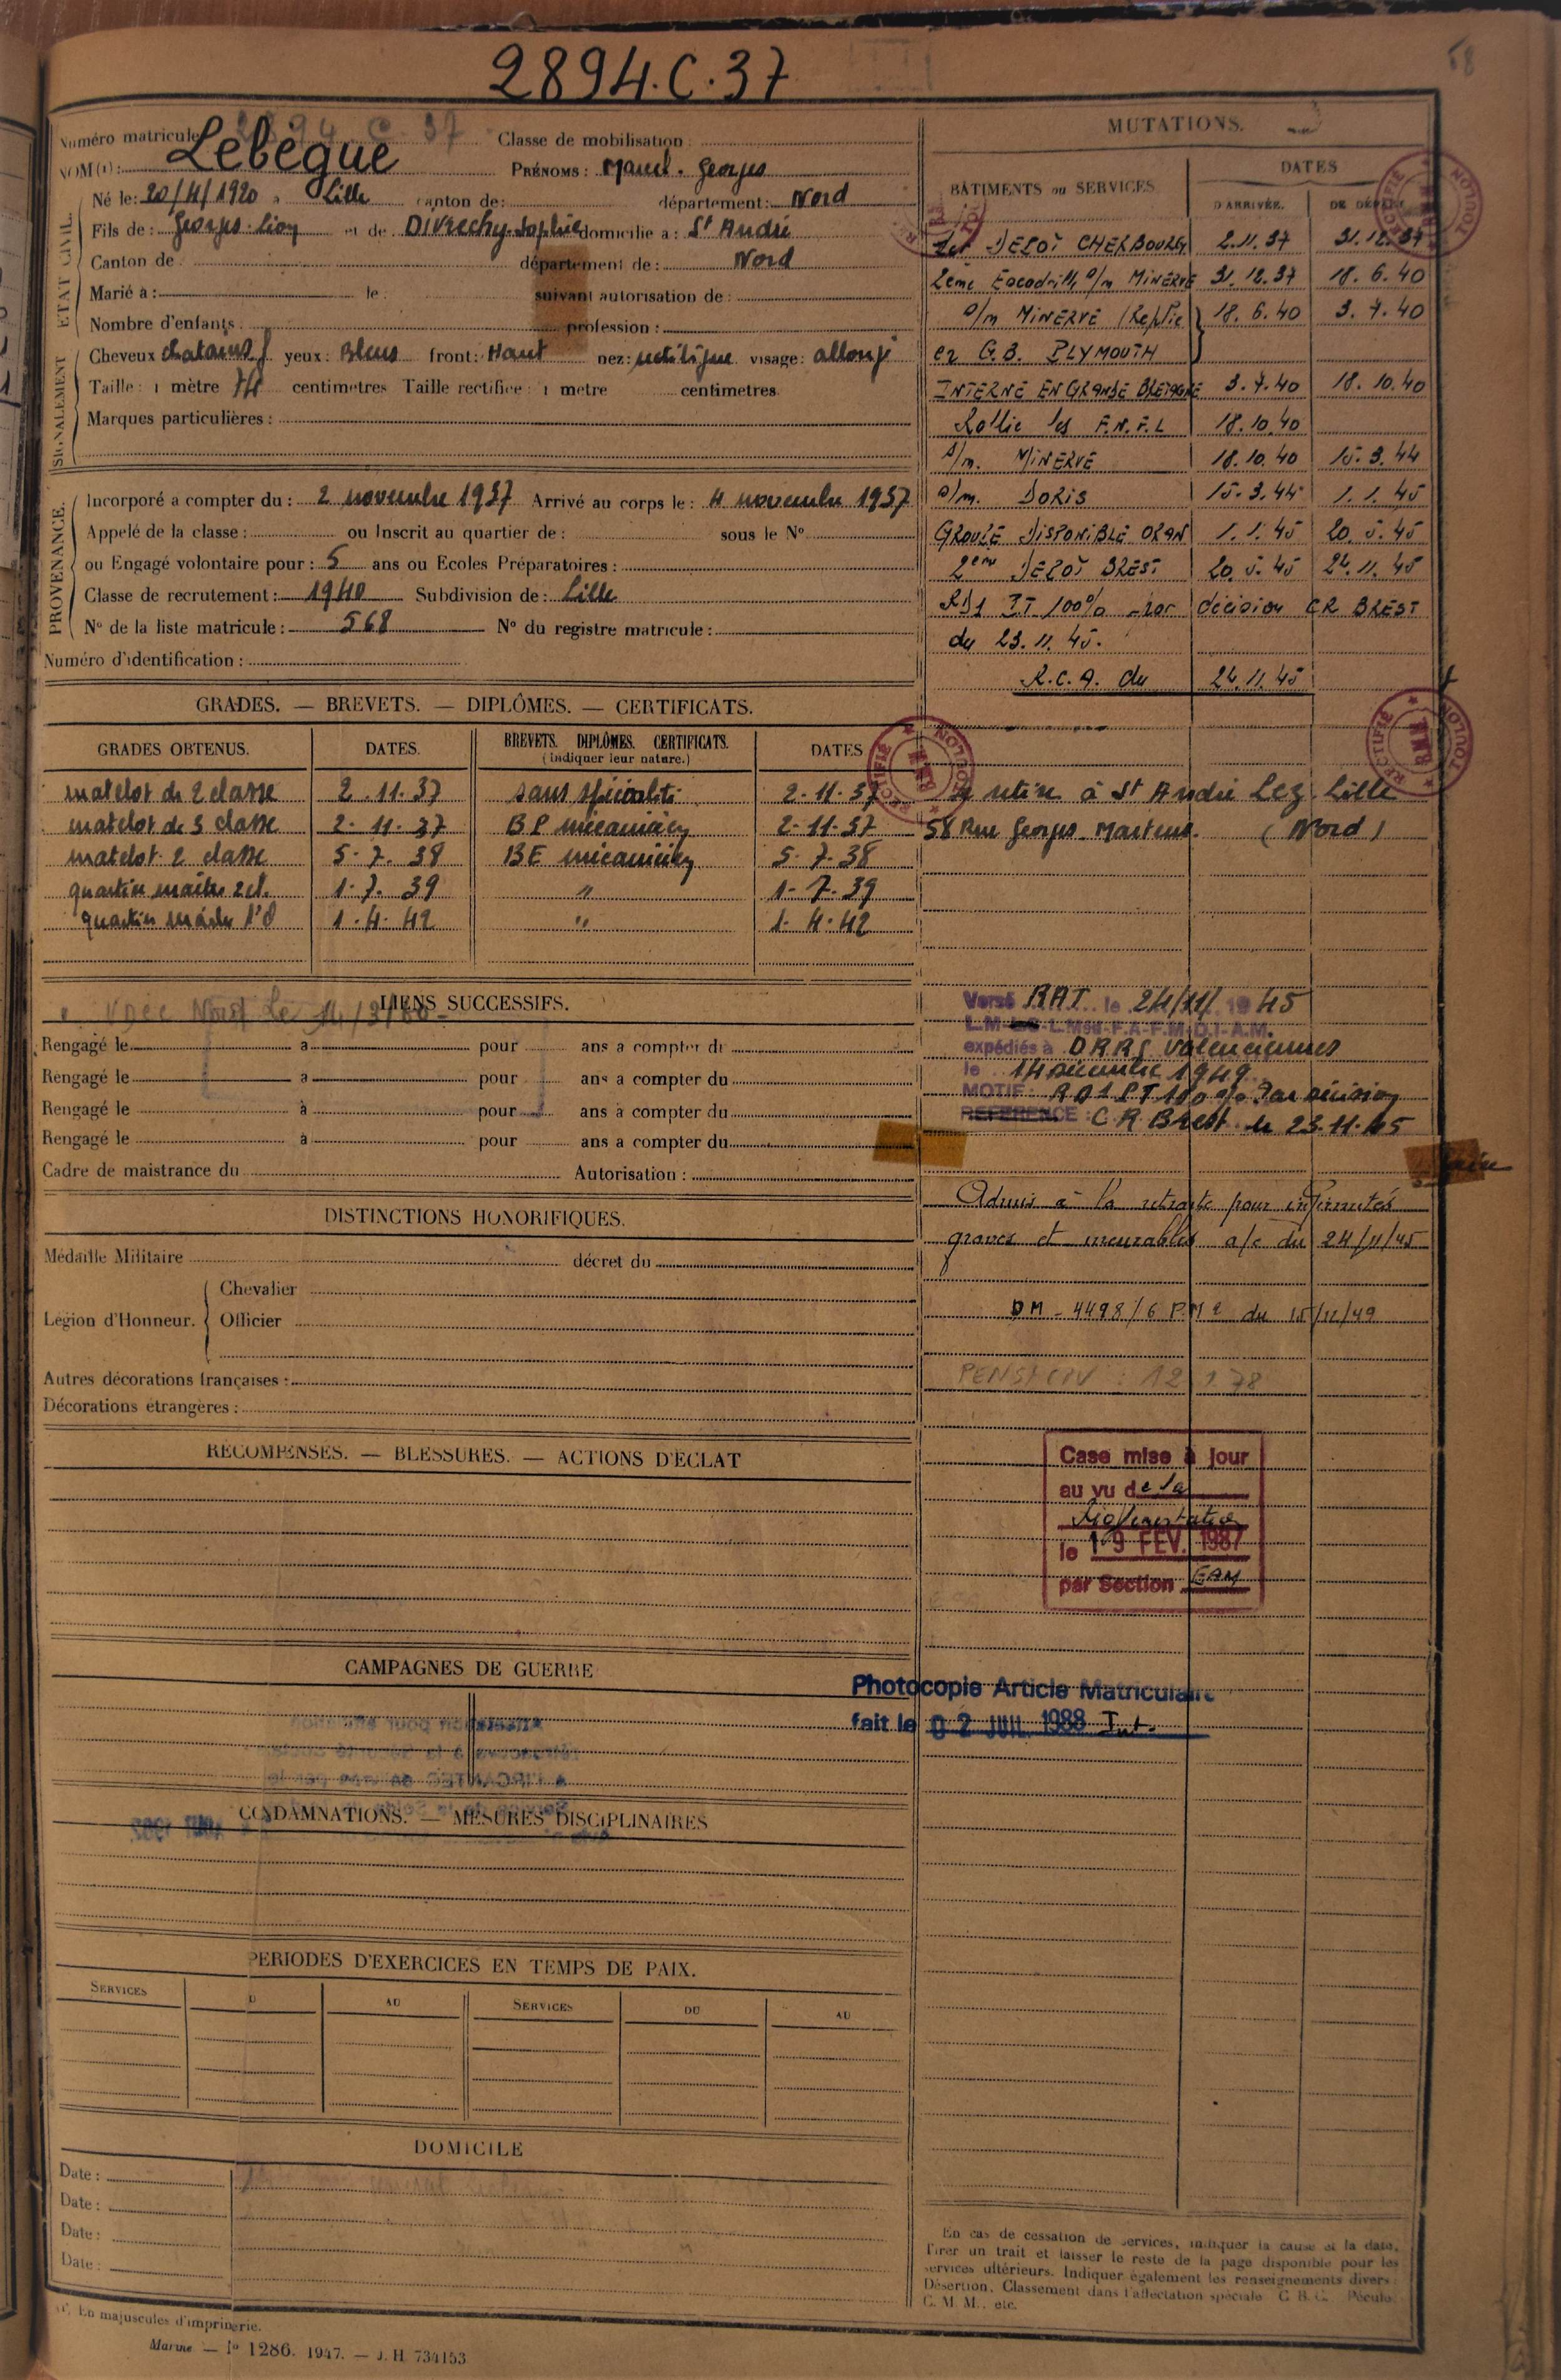 58
2894.C.37
Numéro matricule 2894 C 37 Classe de mobilisation :
NOM (1) : Lebègue PRÉNOMS : Marcel. Georges
Né le : 20/4/1920 à Lille canton de : département : Nord
Fils de : Georges. Léon et de Divrechy. Sophie domicilié à : St André
Canton de département de : Nord
Marié à : le suivant autorisation de :
Nombre d'enfants profession :
ETAT CIVIL.
Cheveux chatains yeux : Bleus front : Haut nez : rectiligne visage : allongé
Taille : 1 mètre 74 centimetres Taille rectifiée : 1 metre centimetres
Marques particulières :
SIGNALEMENT
Incorporé a compter du : 2 novembre 1937 Arrivé au corps le : 4 novembre 1937
Appelé de la classe : ou Inscrit au quartier de : sous le N°
ou Engagé volontaire pour : 5 ans ou Ecoles Préparatoires :
Classe de recrutement : 1940 Subdivision de : Lille
N° de la liste matricule : 568 N° du registre matricule :
PROVENANCE.
Numéro d'identification :
GRADES. — BREVETS. — DIPLÔMES. — CERTIFICATS.
GRADES OBTENUS. DATES. BREVETS. DIPLÔMES. CERTIFICATS. (indiquer leur nature.) DATES
matelot de 2 classe 2.11.37 sans spécialité 2-11-37
matelot de 3 classe 2-11-37 BP mécanicien 2-11-37
matelot 2 classe 5-7-38 BE mécanicien 5-7-38
quartier maître 2 cl. 1-7-39 " 1-7-39
quartier maître 1° 1-4-42 " 1-4-42
LIENS SUCCESSIFS.
Rengagé le à pour ans a compter du
Rengagé le à pour ans a compter du
Rengagé le à pour ans à compter du
Rengagé le à pour ans à compter du
Cadre de maistrance du Autorisation :
DISTINCTIONS HONORIFIQUES.
Médaille Militaire décret du
Chevalier
Légion d'Honneur. Officier
Autres décorations françaises :
Décorations étrangères :
RÉCOMPENSES. — BLESSURES. — ACTIONS D'ÉCLAT
CAMPAGNES DE GUERRE
CONDAMNATIONS. — MESURES DISCIPLINAIRES
PERIODES D'EXERCICES EN TEMPS DE PAIX.
SERVICES D AU SERVICES DU AU
DOMICILE
Date :
Date :
Date :
Date :
(1) En majuscules d'imprimerie.
Marine — 1286. 1947. — J. H 734153
MUTATIONS.
BÂTIMENTS ou SERVICES. DATES
D'ARRIVÉE. DE DÉPART
1er DEPOT CHERBOURG 2.11.37 31.12.37
2ème Escadrille s/m MINERVE 31.12.37 18.6.40
s/m MINERVE (Replié 18.6.40 3.7.40
en G.B. PLYMOUTH
INTERNÉ EN GRANDE BRETAGNE 3.7.40 18.10.40
Rallie les F.N.F.L 18.10.40
s/m. MINERVE 18.10.40 15.3.44
s/m. DORIS 15.3.44 1.1.45
GROUPE DISPONIBLE ORAN 1.1.45 20.5.45
2ème DEPOT BREST 20.5.45 24.11.45
RD1 PT 100% par décision CR BREST
du 23.11.45.
R.C.A. du 24.11.45
RECTIFIÉ TOULON
Se retire à St André Lez Lille
58 Rue Georges Martens. (Nord)
Versé RAT le 24/11/1945
expédiés à DRRS Valenciennes
le 14 décembre 1949
MOTIF : RD1 PT 100% Par décision
REFERENCE : CR Brest du 23.11.45
Admis à la retraite pour infirmités
graves et incurables a/c du 24/11/45
DM - 4498/6 P.M2 du 15/12/49
PENSION : 12 1 78
Case mise à jour
au vu de la
le 19 FEV. 1987
par Section EAM
Photocopie Article Matriculaire
fait le 02 JUIL 1988 Int.
En cas de cessation de services, indiquer la cause et la date,
tirer un trait et laisser le reste de la page disponible pour les
services ultérieurs. Indiquer également les renseignements divers :
Désertion, Classement dans l'affectation spéciale C. B. C. Pécule,
C. M. M., etc.